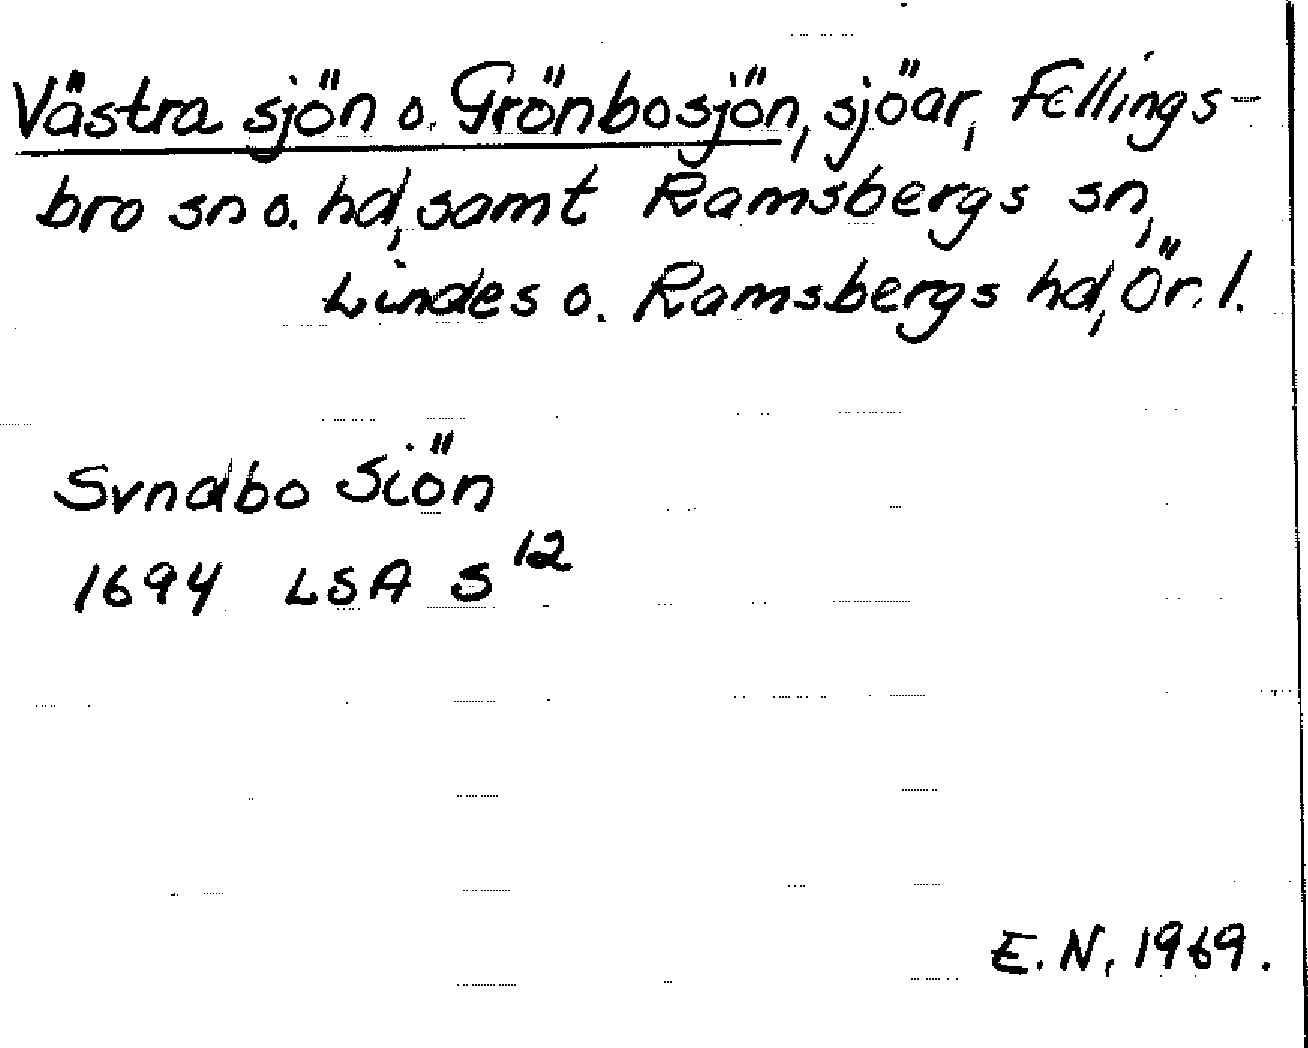 Västra sjön o. Grönbosjön, sjöar, Fellings-
bro sn o. hd, samt Ramsbergs sn,
Lindes o. Ramsbergs hd, Ör. l.
Svndbo Siön
1694 LSA S 12
E. N, 1969.